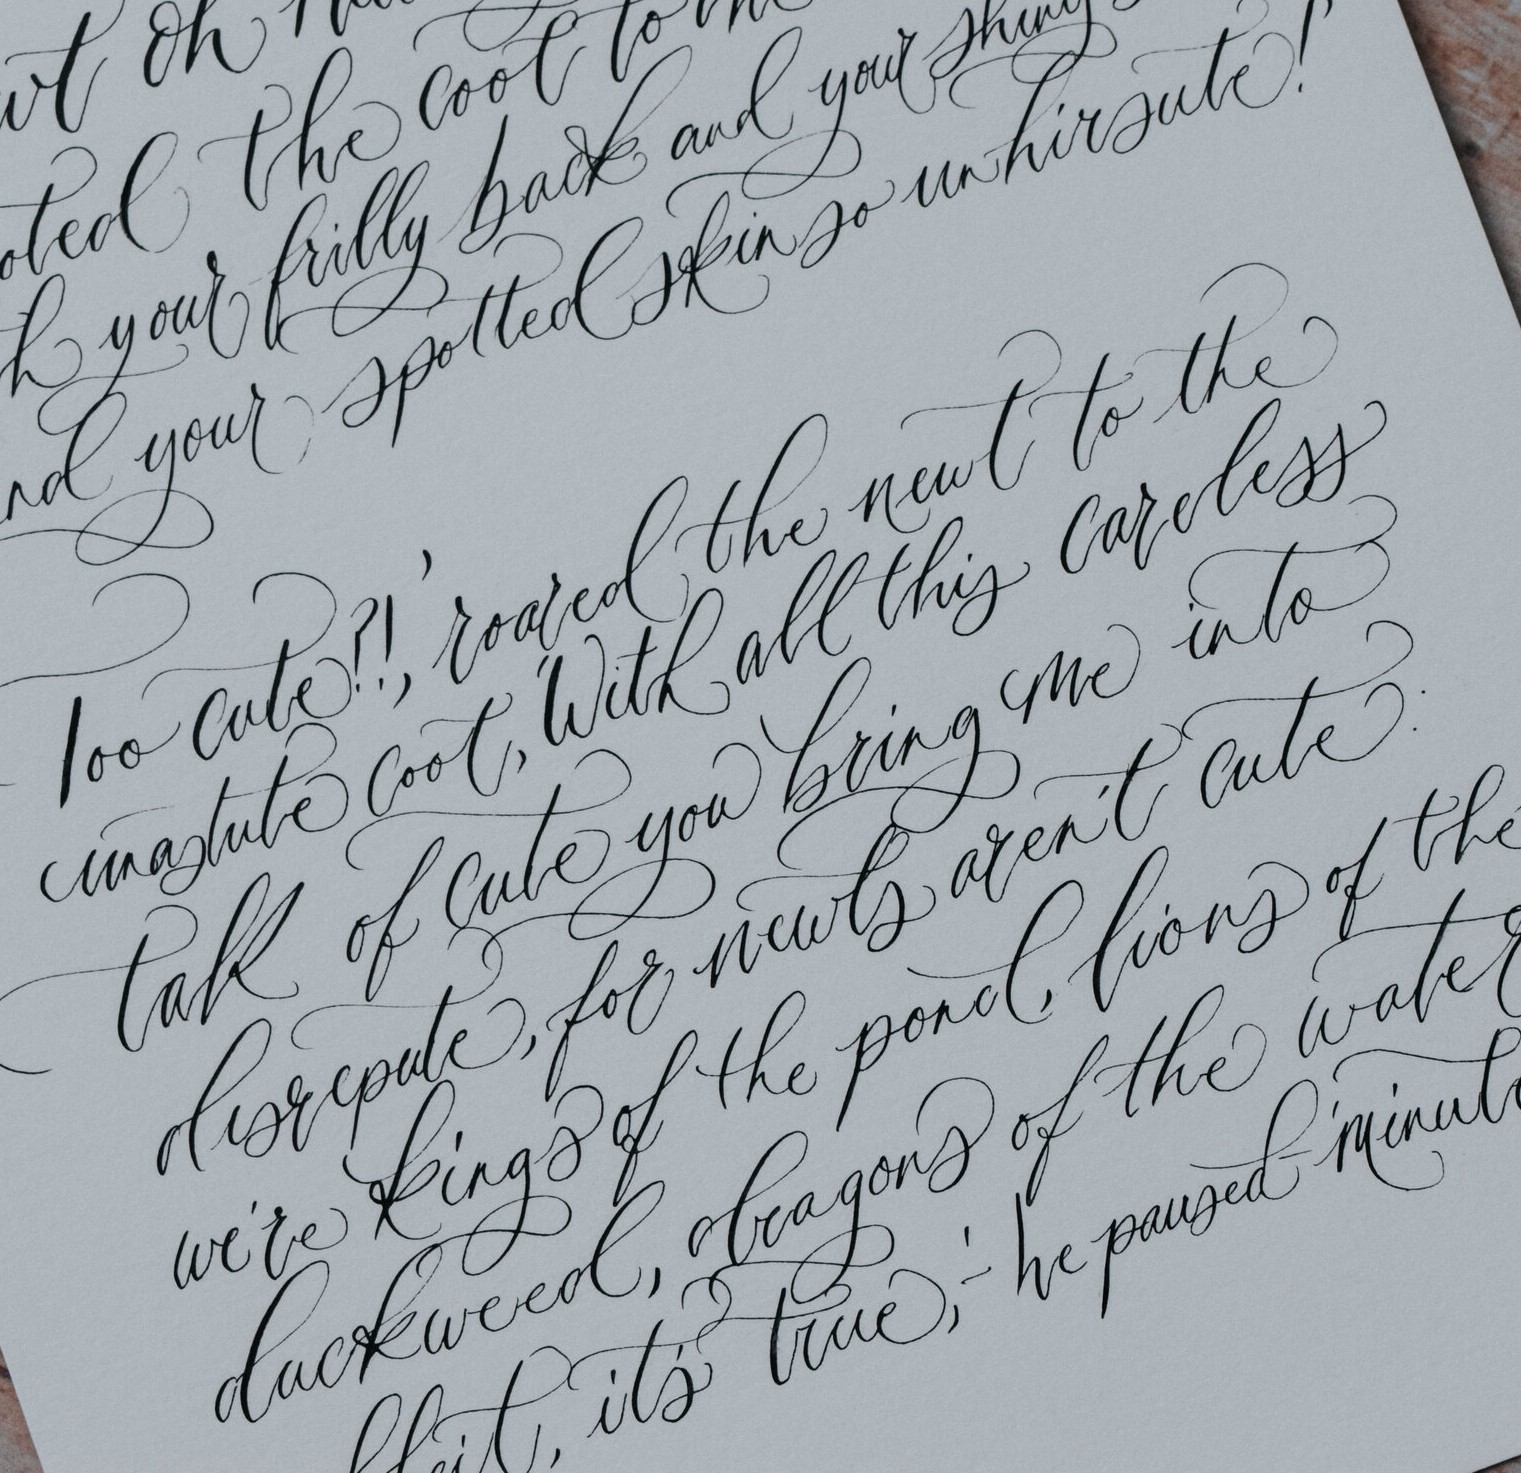 oh
the coot to the
your frilly back and your shiny
your spotted skin so unhirsute!'
Too cute?!,' roared the newt to the
unastute coot, 'With all this careless
talk of cute you bring me into
disrepute, for newts aren't cute:
we're kings of the pond, lions of the
duckweed, dragons of the water
it's true,'- he paused- 'minute